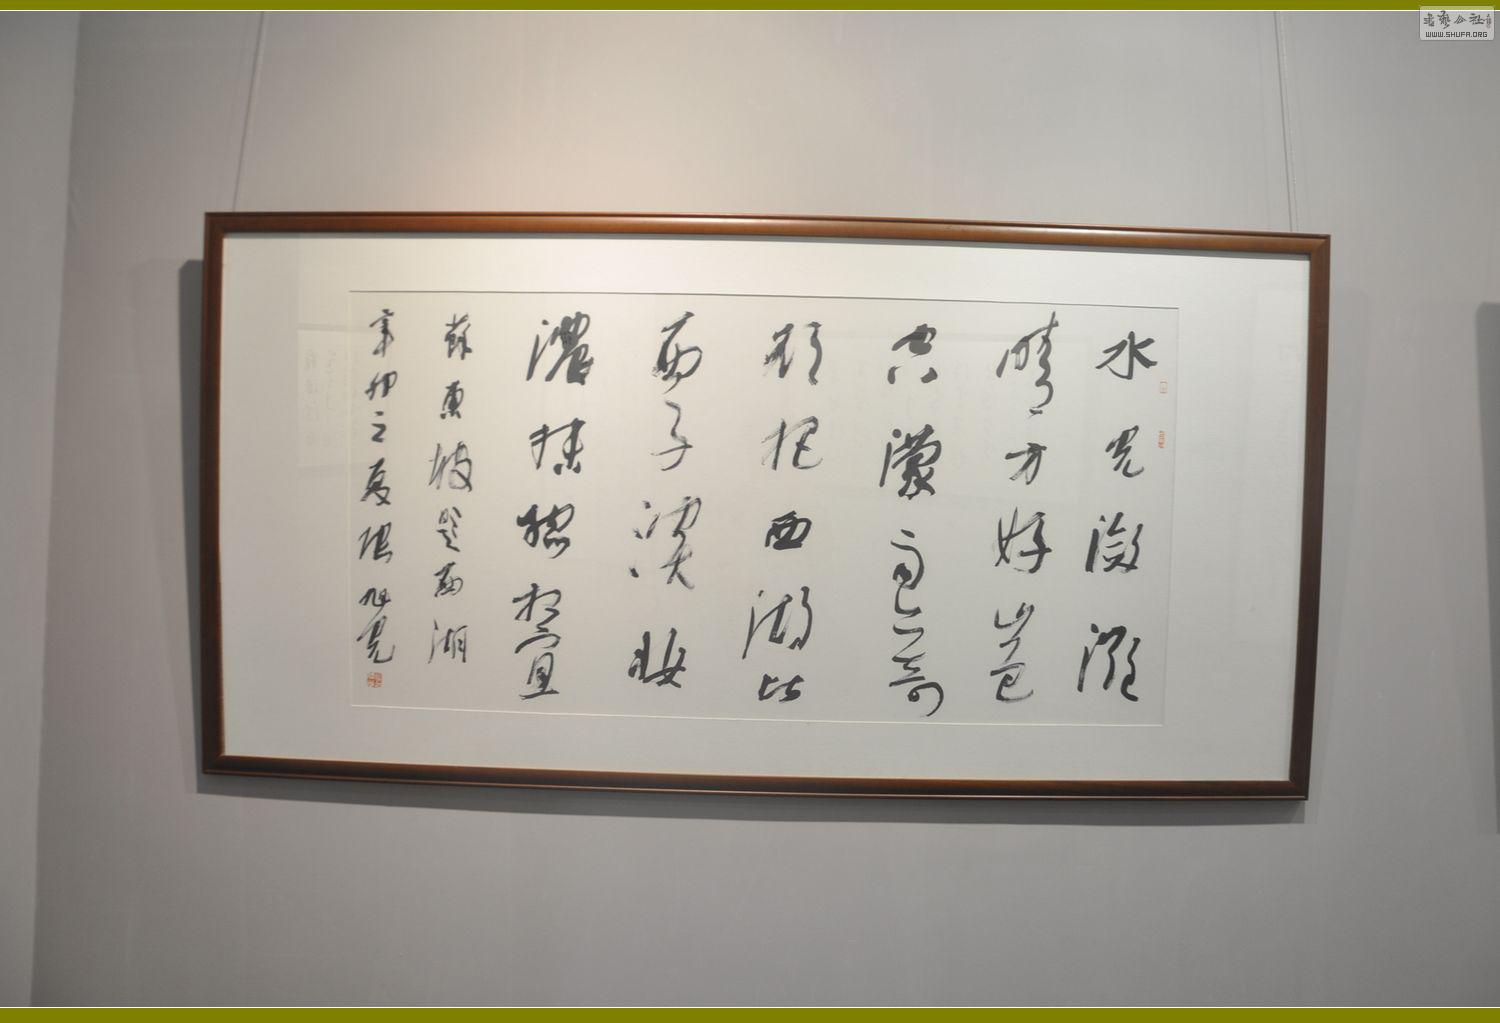 水光潋滟
晴方好山色
空濛雨亦奇
欲把西湖比
西子淡妆
浓抹总相宜
苏东坡题西湖
辛卯之夏张旭光
WWW.SHUFA.ORG